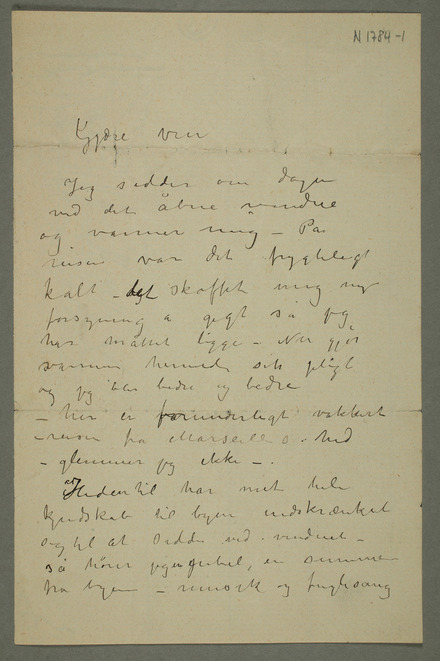 N 1784-1
Kjære ven
Jeg sidder om dagen
ved det åbne vindue
og varmer mig – Paa
reisen var det frygteligt
kalt – det skaffet mig ny
forsyning a gigt så jeg
har måttet ligge – Nu gjør
varmen hernede sin pligt
og jeg blir bedre og bedre
– her er forunderligt vakkert
– reisen fra Marseille o. hid
– glemmer jeg ikke –.
Hidentil har mit hele
kjendskab til byen indskrænket
sig til at sidde ved vinduet –
så hører jeg en summen
fra byen – musik og fuglesang